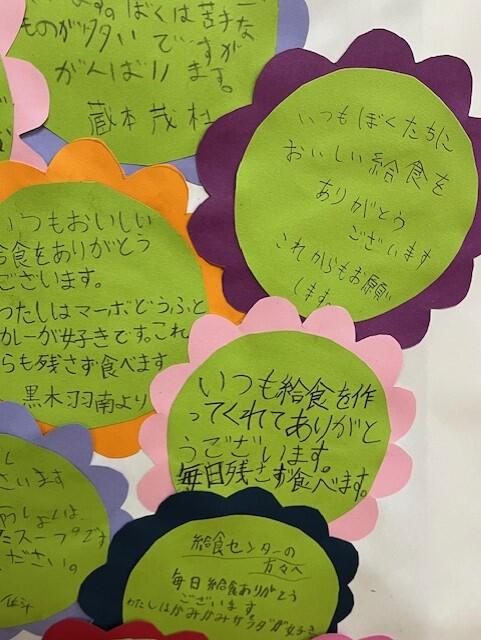 ます。ぼくは苦手な
ものが多いですが
がんばります。
蔵本茂
いつもぼくたちに
おいしい給食を
ありがとう
ございます
これからもお願い
します
いつもおいしい
給食をありがとう
ございます。
わたしはマーボどうふと
カレーが好きです。これ
らも残さず食べます
黒木羽南より
いつも給食を作
ってくれてありがと
うございます。
毎日残さず食べます。
います
スープです
ださい。
給食センターの
方々へ
毎日給食ありがとう
ございます
わたしはかみかみサラダが好き